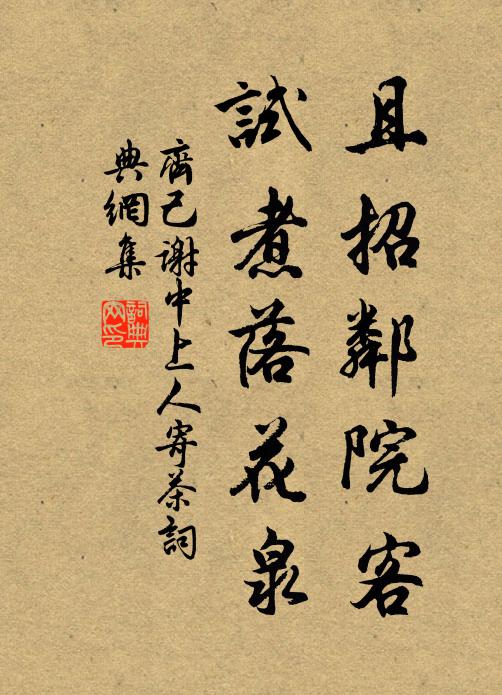 且招鄰院客
試煮落花泉
齊己謝中上人寄茶詞
典網集
詞典
网印